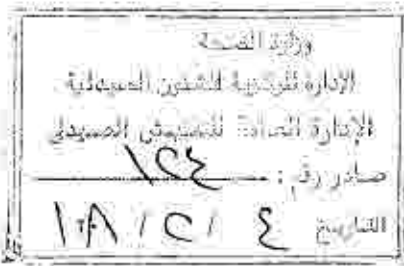 وزارة الصحة
الإدارة المركزية للشئون الصيدلية
الإدارة العامة للتفتيش الصيدلي
صادر رقم : ١٢٤
التاريخ ٤ / ٢ /